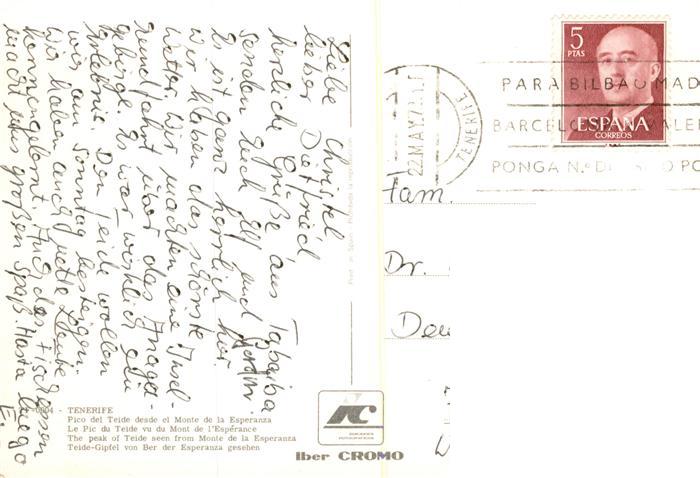 Liebe Christel
lieber Dietfried
herzliche Grüße aus Tabaiba
senden Euch Elf und
Es ist ganz herrlich hier
wir haben das schönste
Wetter. Wir machten eine Insel-
rundfahrt über das Anaga-
gebirge. Es war wirklich ein
Erlebnis. Den Teide wollen
wir am Sonntag besteigen
Wir haben auch nette Leute
kennengelernt. Auch das Fischessen
macht uns großen Spaß. Hasta luego
E.
Printed in Spain
- TENERIFE
Pico del Teide desde el Monte de la Esperanza
Le Pic du Teide vu du Mont de l'Espérance
The peak of Teide seen from Monte de la Esperanza
Teide-Gipfel von Ber der Esperanza gesehen
Iber CROMO
22 MAY 7
TENERIFE
PARA BILBAO MAD
BARCEL VALEN
PONGA N.º D
5
PTAS
ESPAÑA
CORREOS
Fam.
Dr.